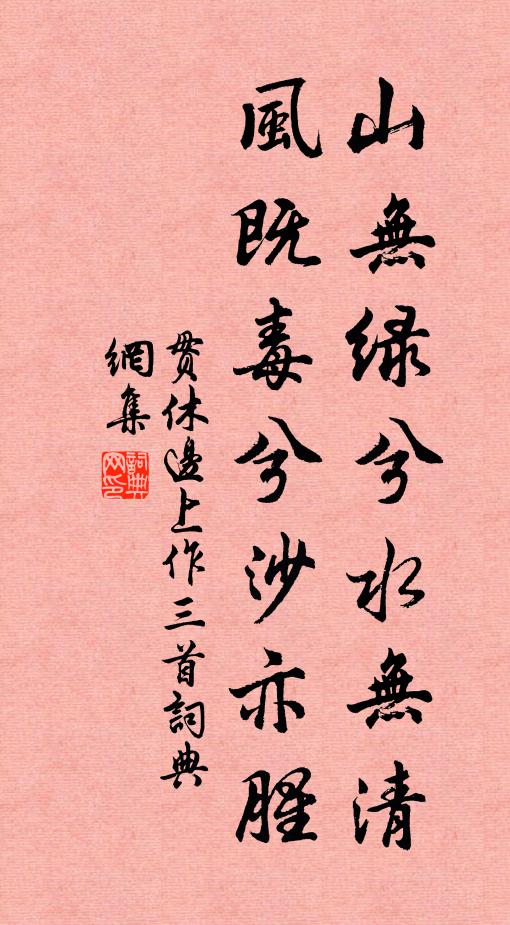 山無緑兮水無清
風既毒兮沙亦腥
贯休邊上作三首詞典
網集
詞典
网印